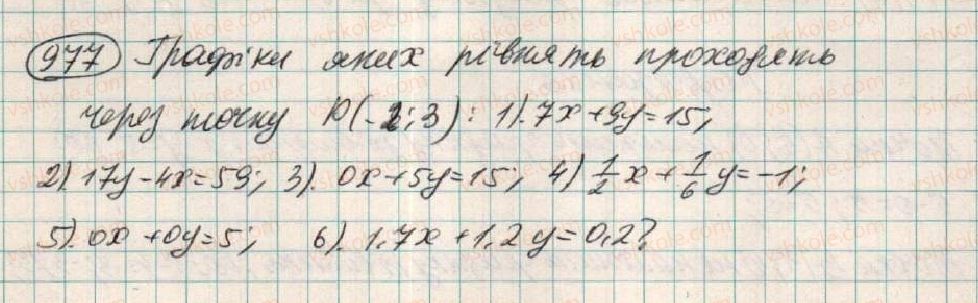 977 Графіки яких рівнять проходять
через точку Ю(-2;3): 1). 7x+9y=15;
2) 17y-4x=59; 3). 0x+5y=15; 4) 1/2 x + 1/6 y = -1;
5). 0x+0y=5; 6). 1.7x+1.2y=0.2?